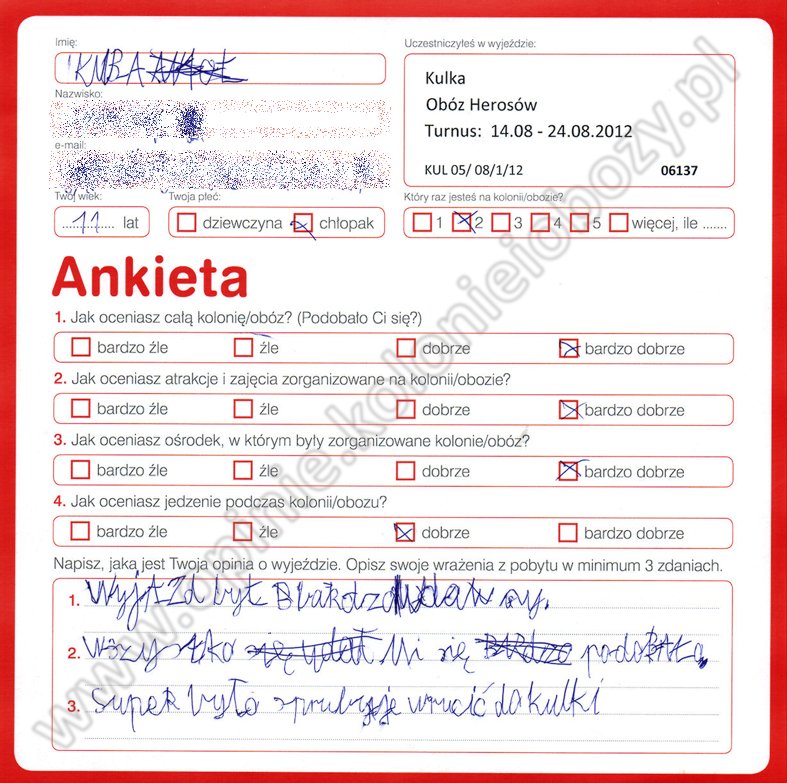 Imię:
Uczestniczyłeś w wyjeździe:
KUBA
Kulka
Obóz Herosów
Turnus: 14.08 - 24.08.2012
KUL 05/ 08/1/12 06137
Nazwisko:
e-mail:
Twój wiek: Twoja płeć: Który raz jesteś na kolonii/obozie?
11 lat dziewczyna chłopak 1 2 3 4 5 więcej, ile .......
Ankieta
1. Jak oceniasz całą kolonię/obóz? (Podobało Ci się?)
bardzo źle źle dobrze bardzo dobrze
2. Jak oceniasz atrakcje i zajęcia zorganizowane na kolonii/obozie?
bardzo źle źle dobrze bardzo dobrze
3. Jak oceniasz ośrodek, w którym były zorganizowane kolonie/obóz?
bardzo źle źle dobrze bardzo dobrze
4. Jak oceniasz jedzenie podczas kolonii/obozu?
bardzo źle źle dobrze bardzo dobrze
Napisz, jaka jest Twoja opinia o wyjeździe. Opisz swoje wrażenia z pobytu w minimum 3 zdaniach.
1. WyjAZd był
2. wszystko się udał Mi się BARdzo podoBAło.
3. super było sprubuję wrucić do kulki
www.opinie.kolonieiobozy.pl